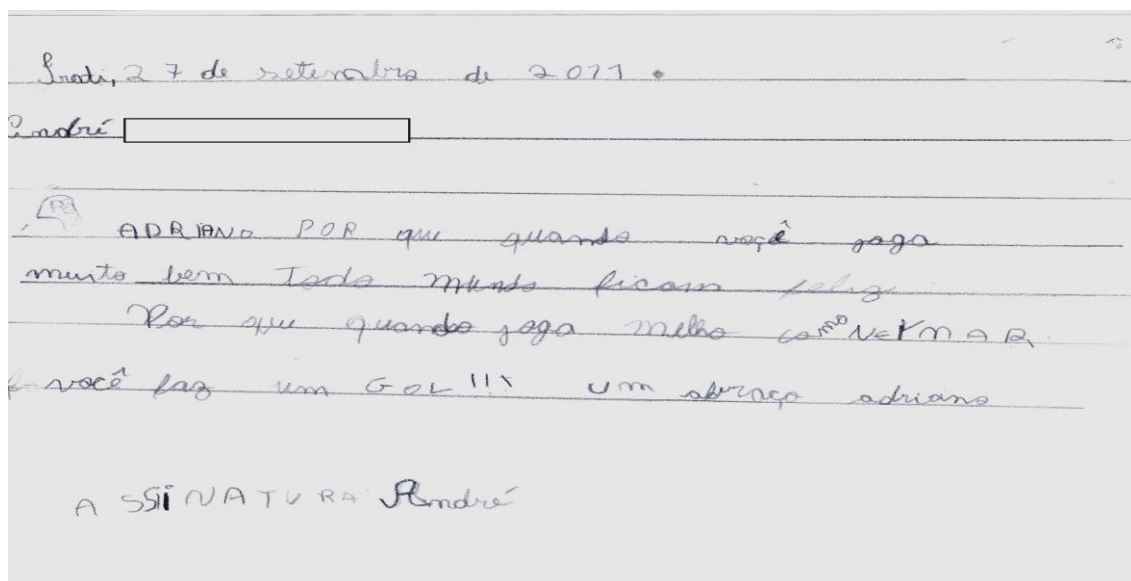 Irati, 27 de setembro de 2011.
André
ADRIANO POR que quando voçê joga
muito bem Todo mundo ficam feliz
Por que quando joga melho como NEYMAR
você faz um GOL!!! um abraço adriano
ASSiNATURA André